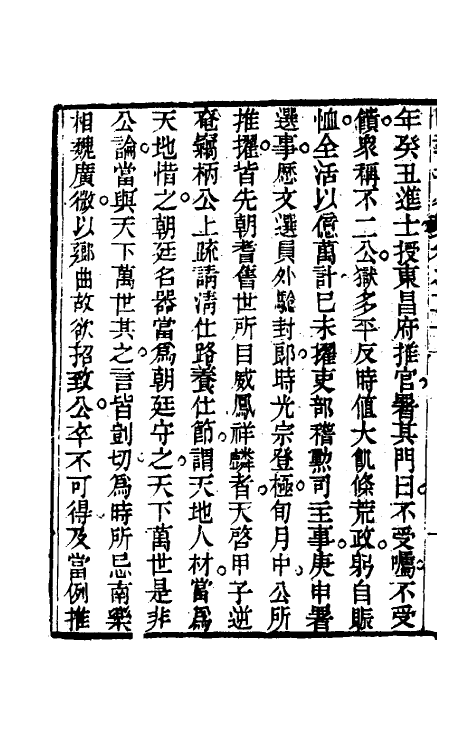 年癸丑進士授東昌府推官署其門曰不受囑不受
饋衆稱不二公獄多平反時値大飢條荒政躬自賑
恤全活以億萬計巳未擢吏部稽勲司主事庚申署
選事歷文選員外驗封郎時光宗登極旬月中公所
推擢皆先朝耆舊世所目威鳳祥麟者天啓甲子逆
奄竊柄公上疏請淸仕路養仕節謂天地人材當爲
天地惜之朝廷名器當爲朝廷守之天下萬世是非
公論當與天下萬世其之言皆剴切爲時所忌南樂
相魏廣微以鄉曲故欲招致公卒不可得及當例推